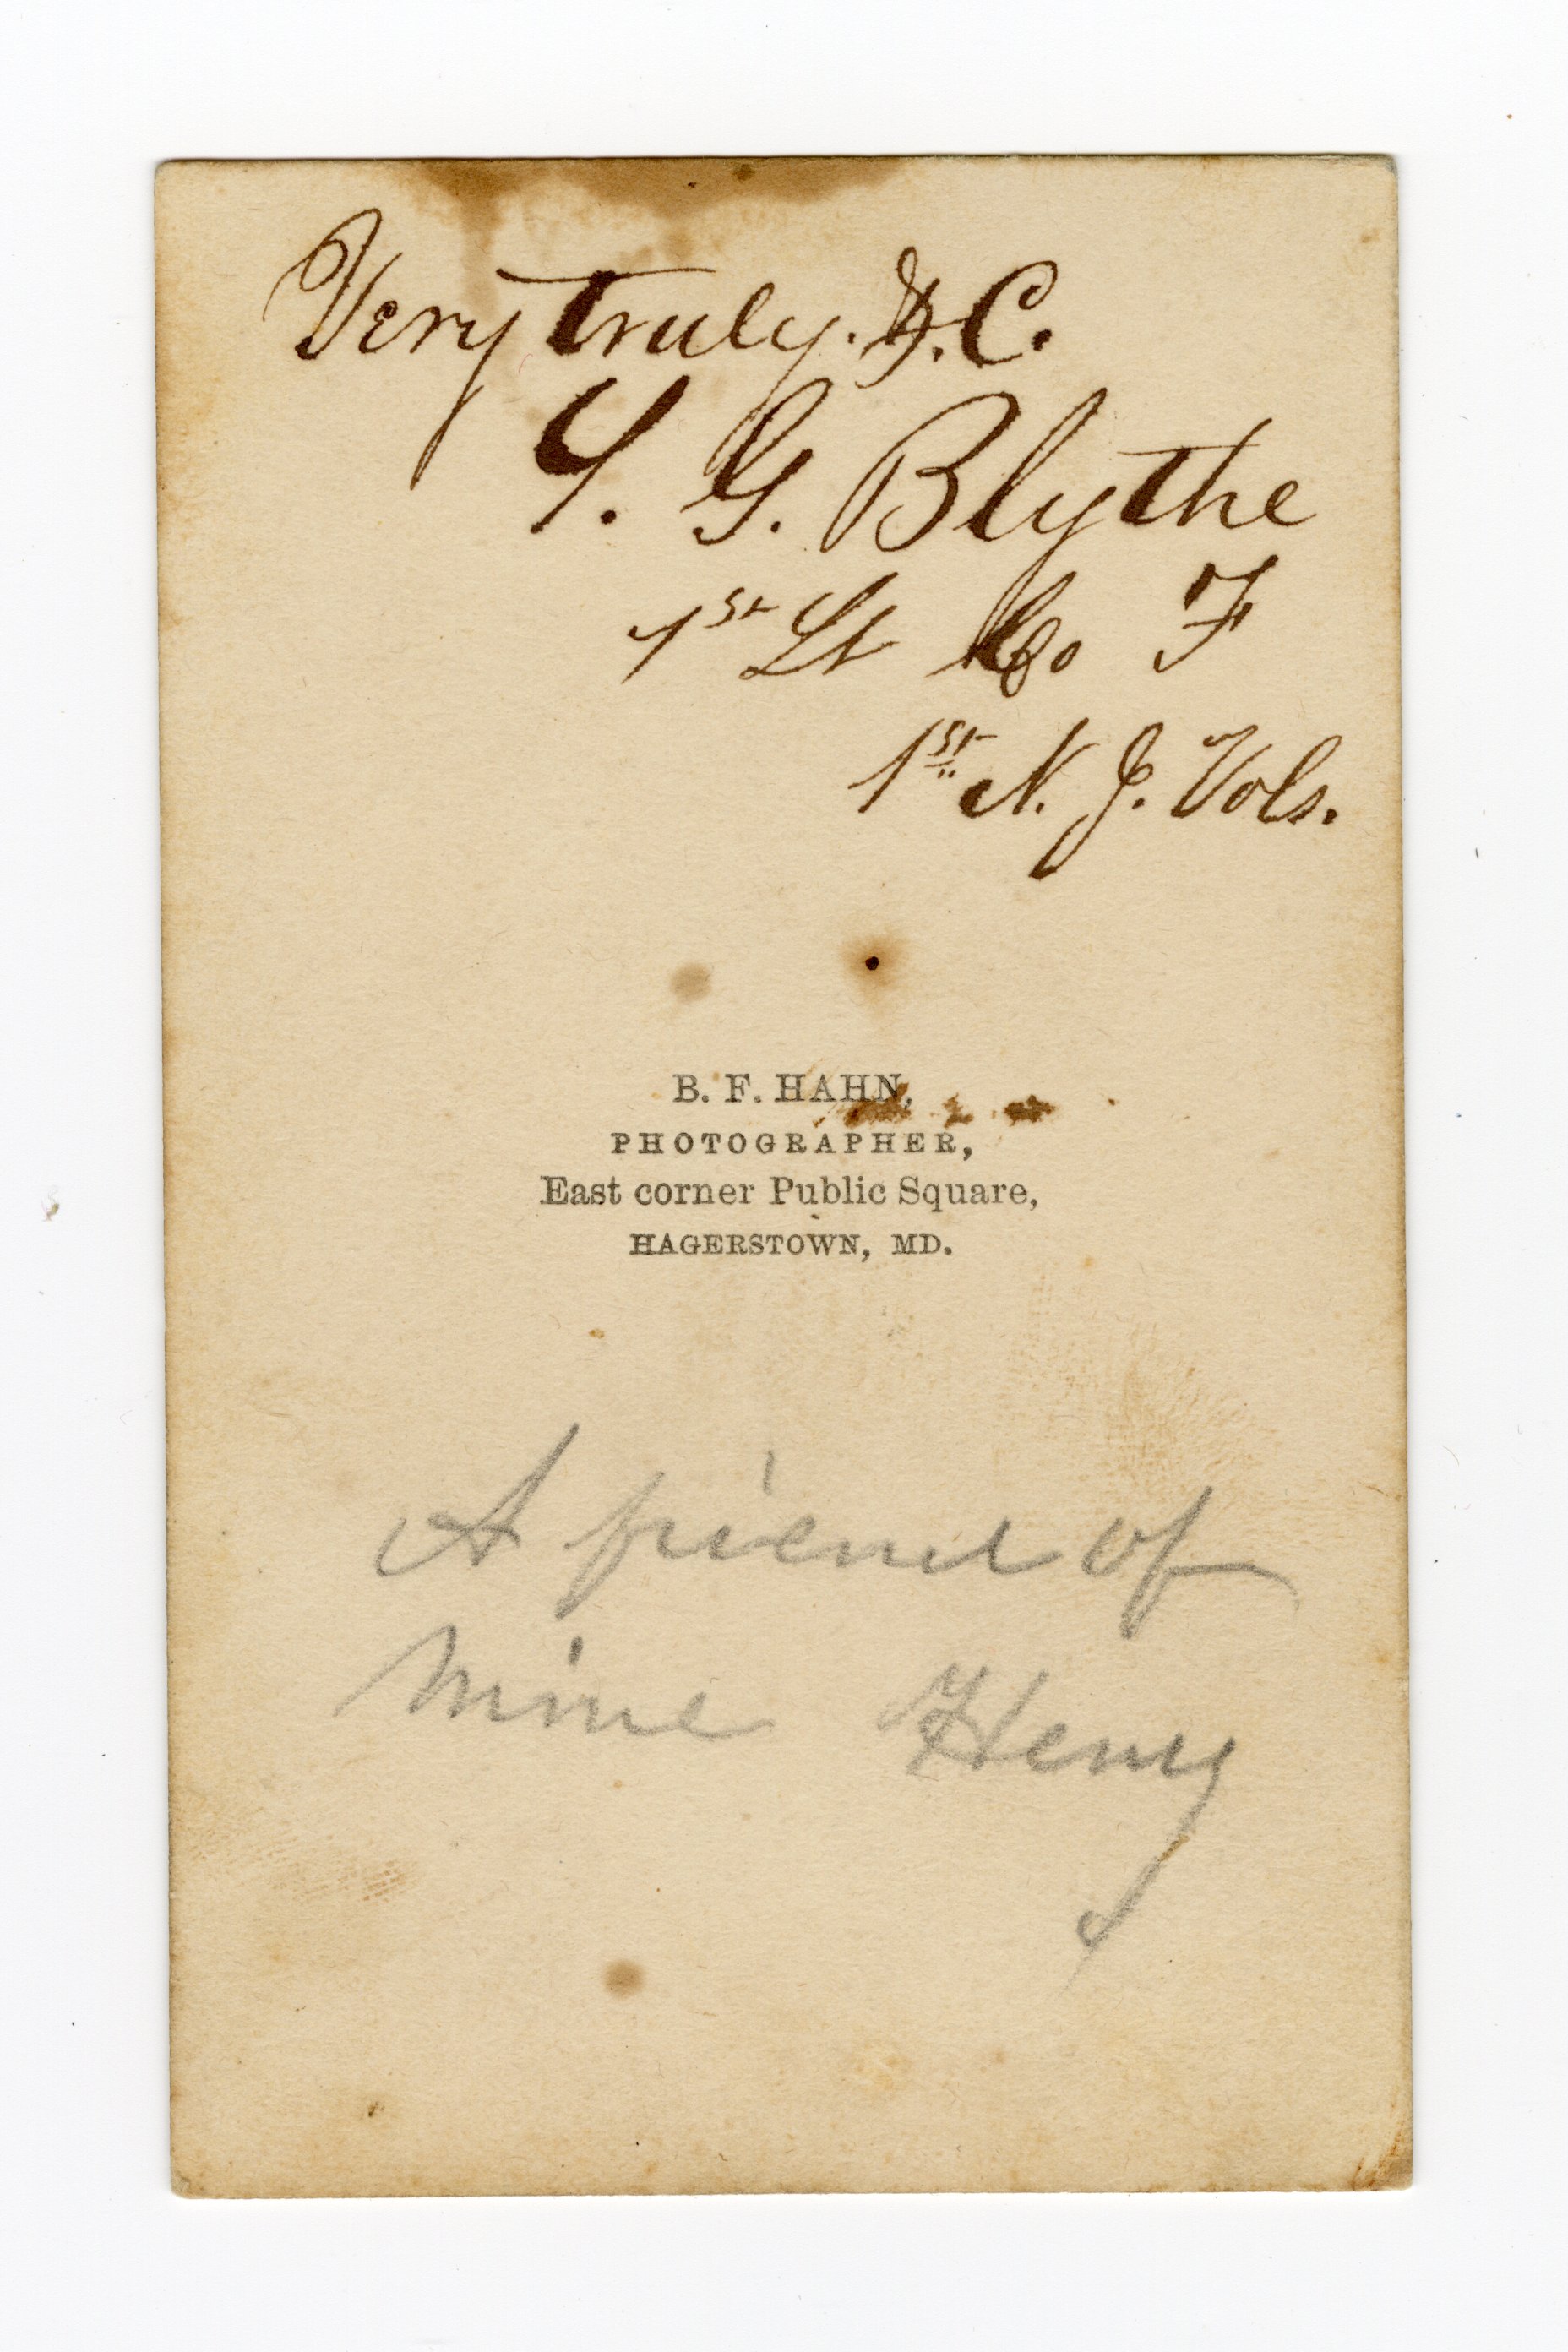 Very truly. &.C.
Y. G. Blythe
1st Lt Co F
1st N. J. Vols.
B. F. HAHN,
PHOTOGRAPHER,
East corner Public Square,
HAGERSTOWN, MD.
A friend of
Mine Henry